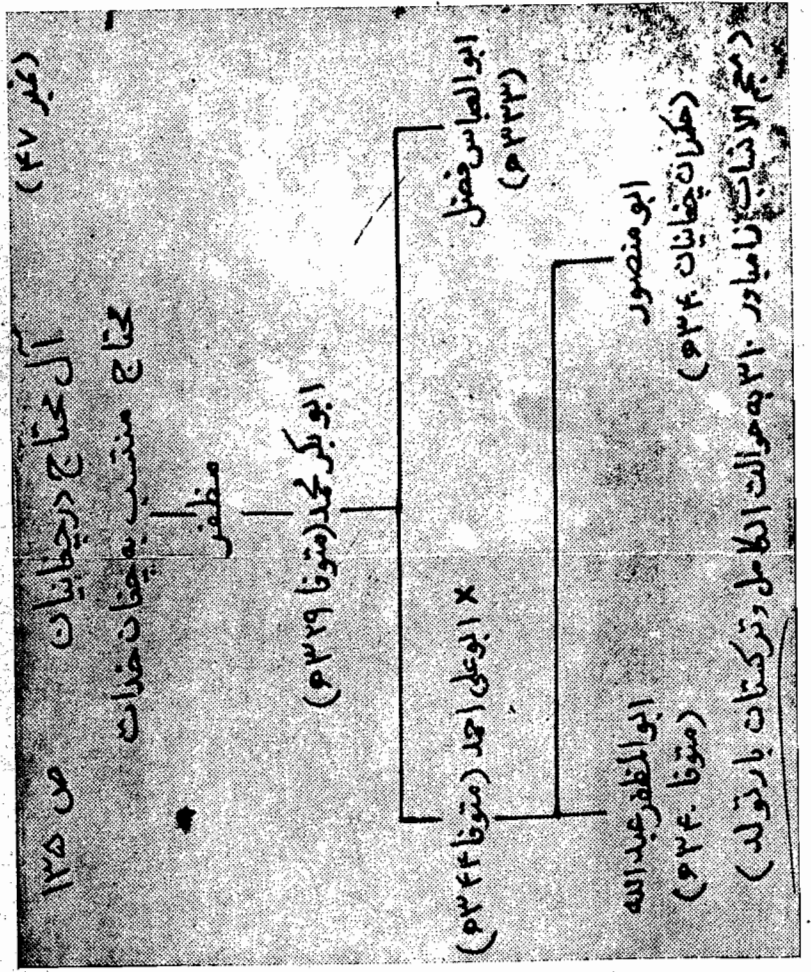 (نمبر ۴۷) آل محتاج در چغانیان ص ۱۳۵
محتاج منتسب به چغان خدات
مظفر
ابوبکر محمد (متوفا ۳۲۹ ه)
ابوالعباس فضل
(۳۳۳ ه)
× ابوعلی احمد (متوفا ۳۴۴ ه)
ابو منصور
(حکمران چغانیان ۳۴۰ ه)
ابوالمظفر عبدالله
(متوفا ۳۴۰ ه)
(معجم الانساب زامباور ۳۱۰ به حوالت الکامل و ترکستان بارتولد)